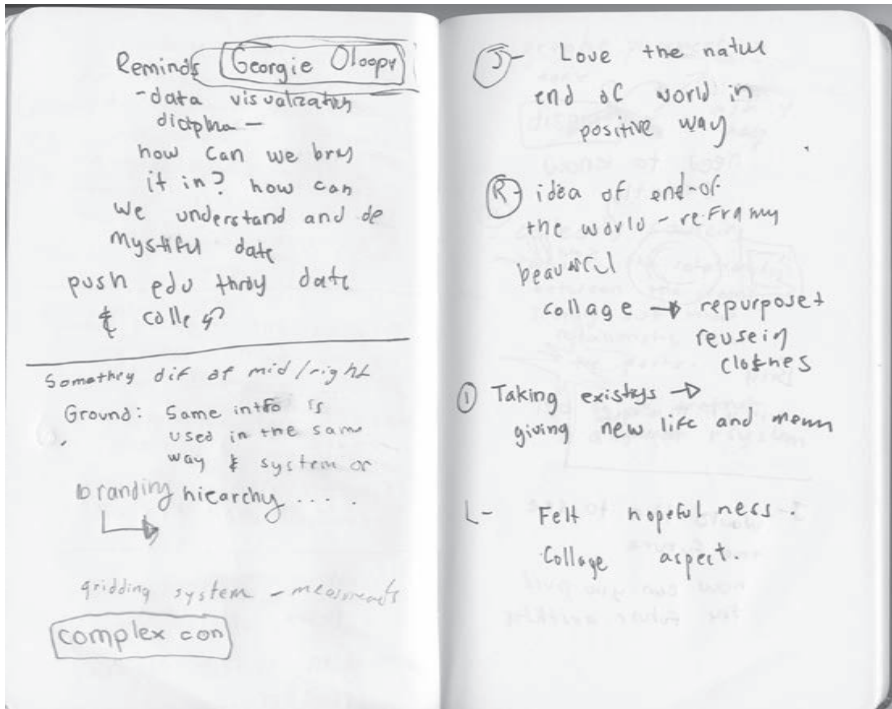 Reminds Georgie Oloopy
- data visualization
how can we bring
it in? how can
we understand and de
mystiful date
push edu throy date
& colle
Somethey dif of mid/right
Ground: Same info is
used in the same
way & system or
branding hiearchy ....
gridding system -
complex con
J - Love the natur
end of world in
positive way
R - idea of end-of-
the world - reframy
collage → repurpose +
reuse in
clothes
1 Taking existys →
giving new life and
L- Felt hopefulness.
Collage aspect.